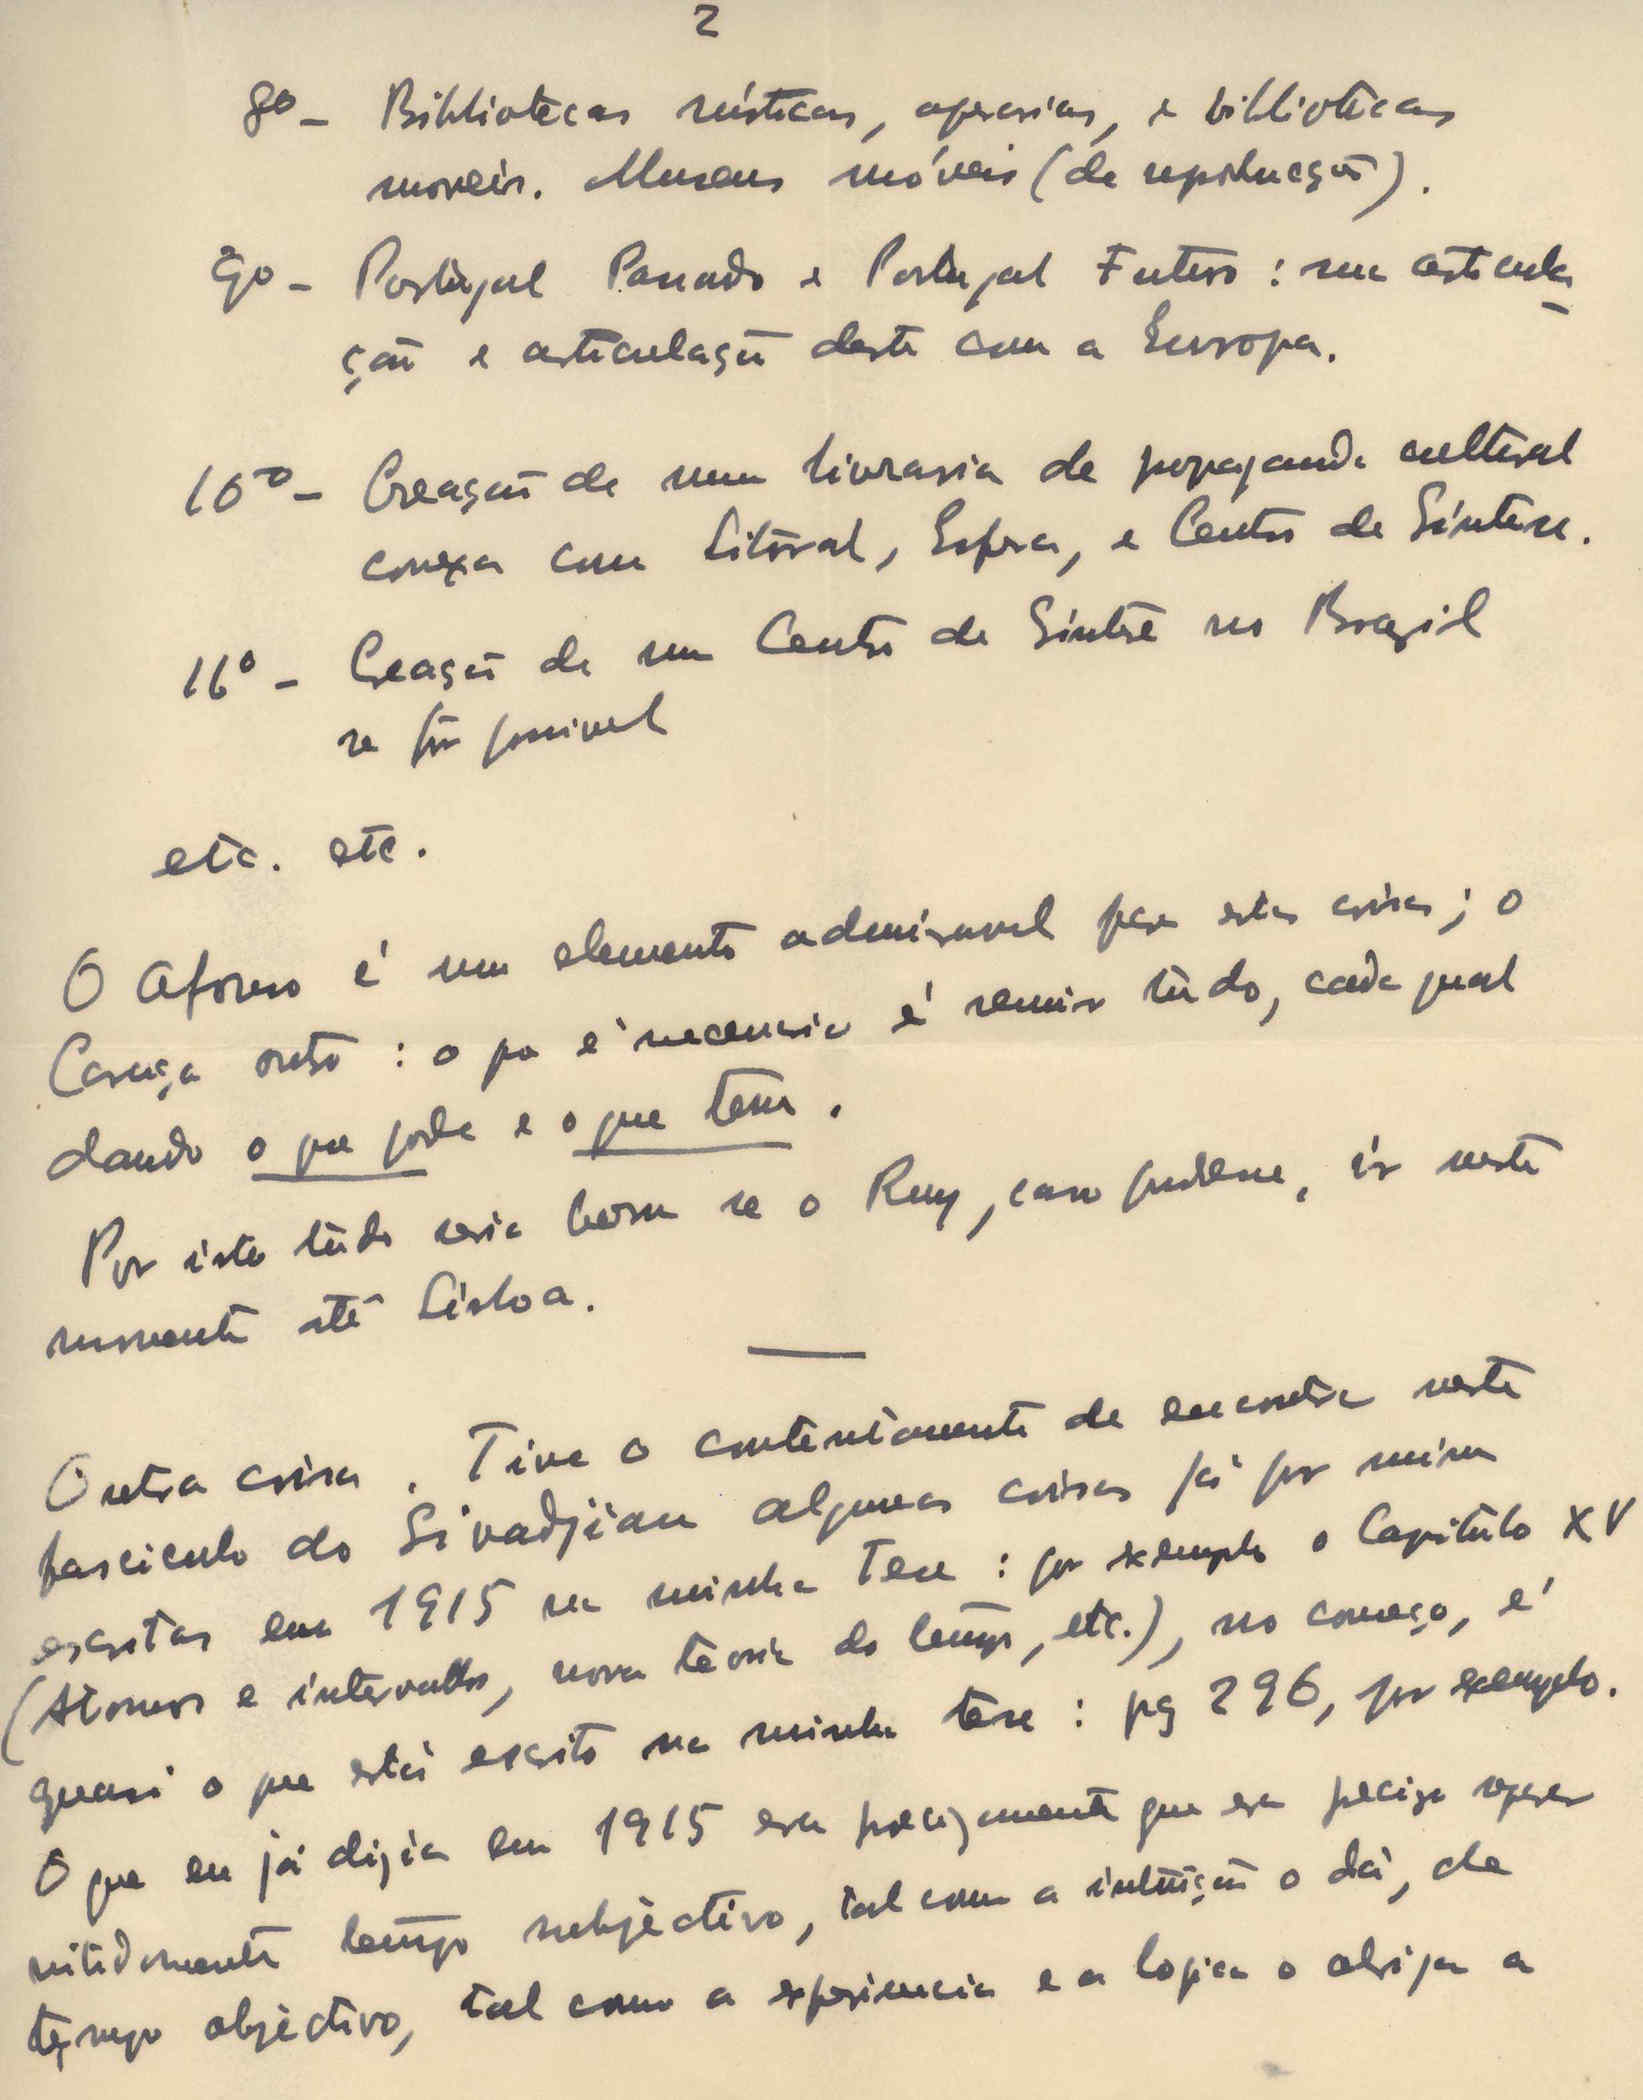 2
8º - Bibliotecas rústicas, operarias, e bibliotecas
moveis. Museus móveis (de reprodução).
9º - Portugal Passado e Portugal Futuro: sua articula-
ção e articulação deste com a Europa.
10º - Creação de uma livraria de propaganda cultural
conexa com Litoral, Esfera, e Centro de Síntese.
11º - Creação de um Centro de Síntese no Brazil
se fôr possivel
etc. etc.
O Afonso é um elemento admiravel para estas coisas; o
Caraça outro: o que é necessario é reunir tudo, cada qual
dando o que pode e o que tem.
Por isto tudo seria bom se o Ruy, caso pudesse, ir neste
momento até Lisboa.
Outra coisa. Tive o contentamento de encontrar neste
fasciculo do Sivadjian algumas coisas já por mim
escritas em 1915 na minha Tese: por exemplo o Capítulo XV
(Atomos e intervallos, nova teoria do tempo, etc.), no começo, é
quasi o que está escrito na minha tese: pg 296, por exemplo.
O que eu já dizia em 1915 era precizamente que era precizo separar
nitidamente tempo subjectivo, tal como a intuição o dá, de
tempo objectivo, tal como a experiencia e a logica o obriga a